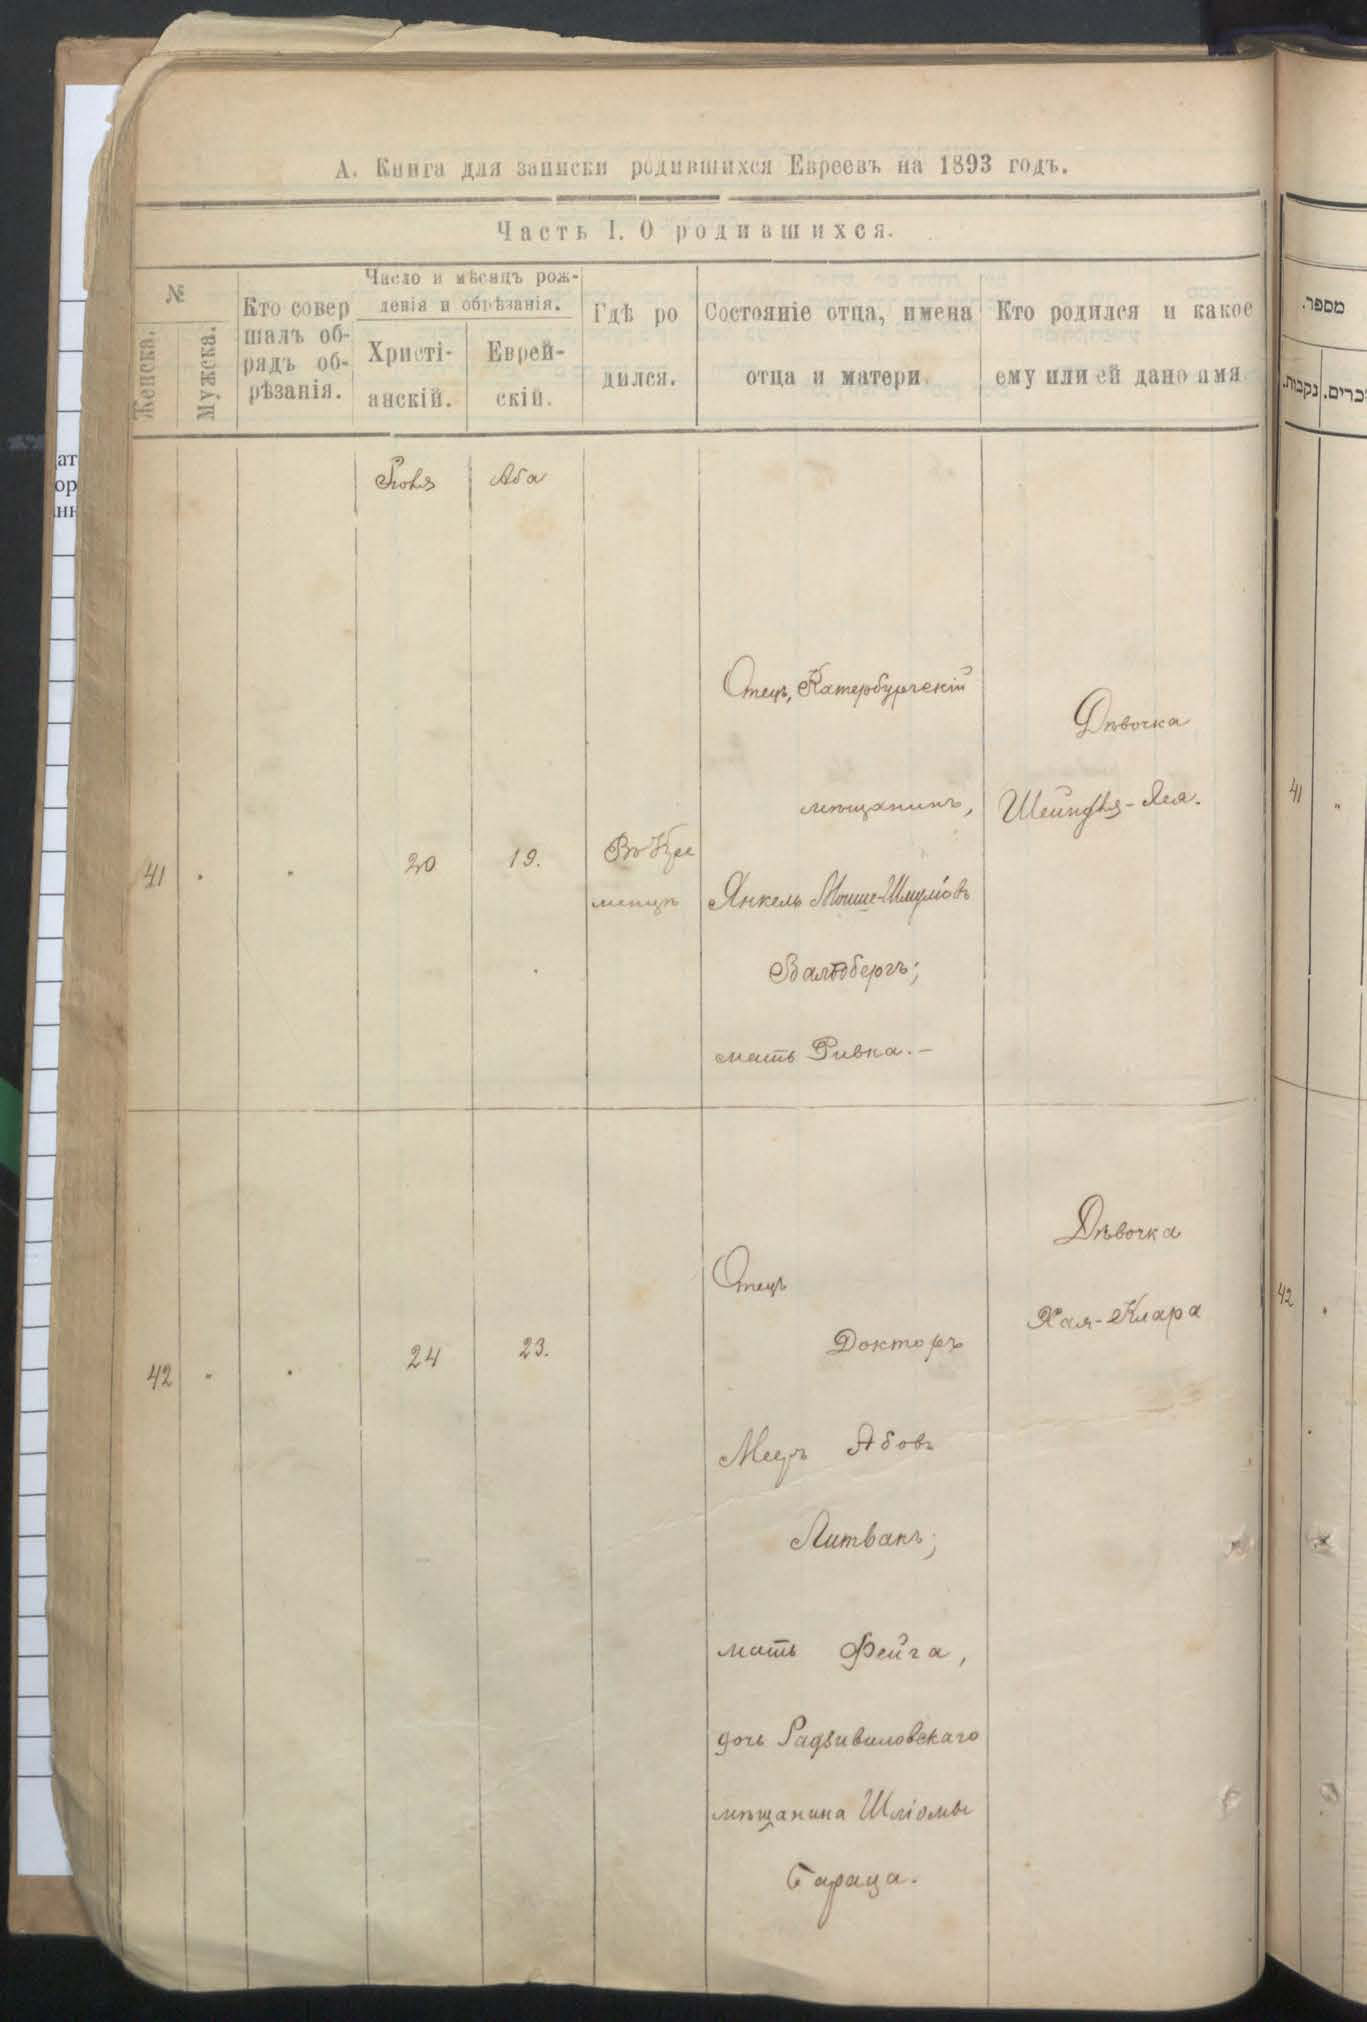 А. Книга для записки родившихся Евреевъ на 1893 годъ.
Часть I. О родившихся.
№
Женска.
Мужска.
Кто совер
шалъ об-
рядъ об-
рѣзанія.
Число и мѣсяцъ рож-
денія и обрѣзанія.
Христі-
анскій.
Еврей-
скій.
Гдѣ ро
дился.
Состояніе отца, имена
отца и матери
Кто родился и какое
ему или ей дано имя
Аба
41
20
19.
Въ Кре
менцѣ
Отецъ, Катербургскій
мѣщанинъ,
Янкель Мошше-Шмулiовъ
Валдбергъ;
мать Ривка.–
Дѣвочка
Шейндля-Лея.
42
24
23.
Отецъ
Докторъ
Мееръ Абовъ
Литвакъ;
мать Фейга,
дочь Радзивиловскаго
мѣщанина Шліомы
Бараца.
Дѣвочка
Хая-Клара
מספר.
נקבות.
זכרים.
41
42
ат
ор
нн